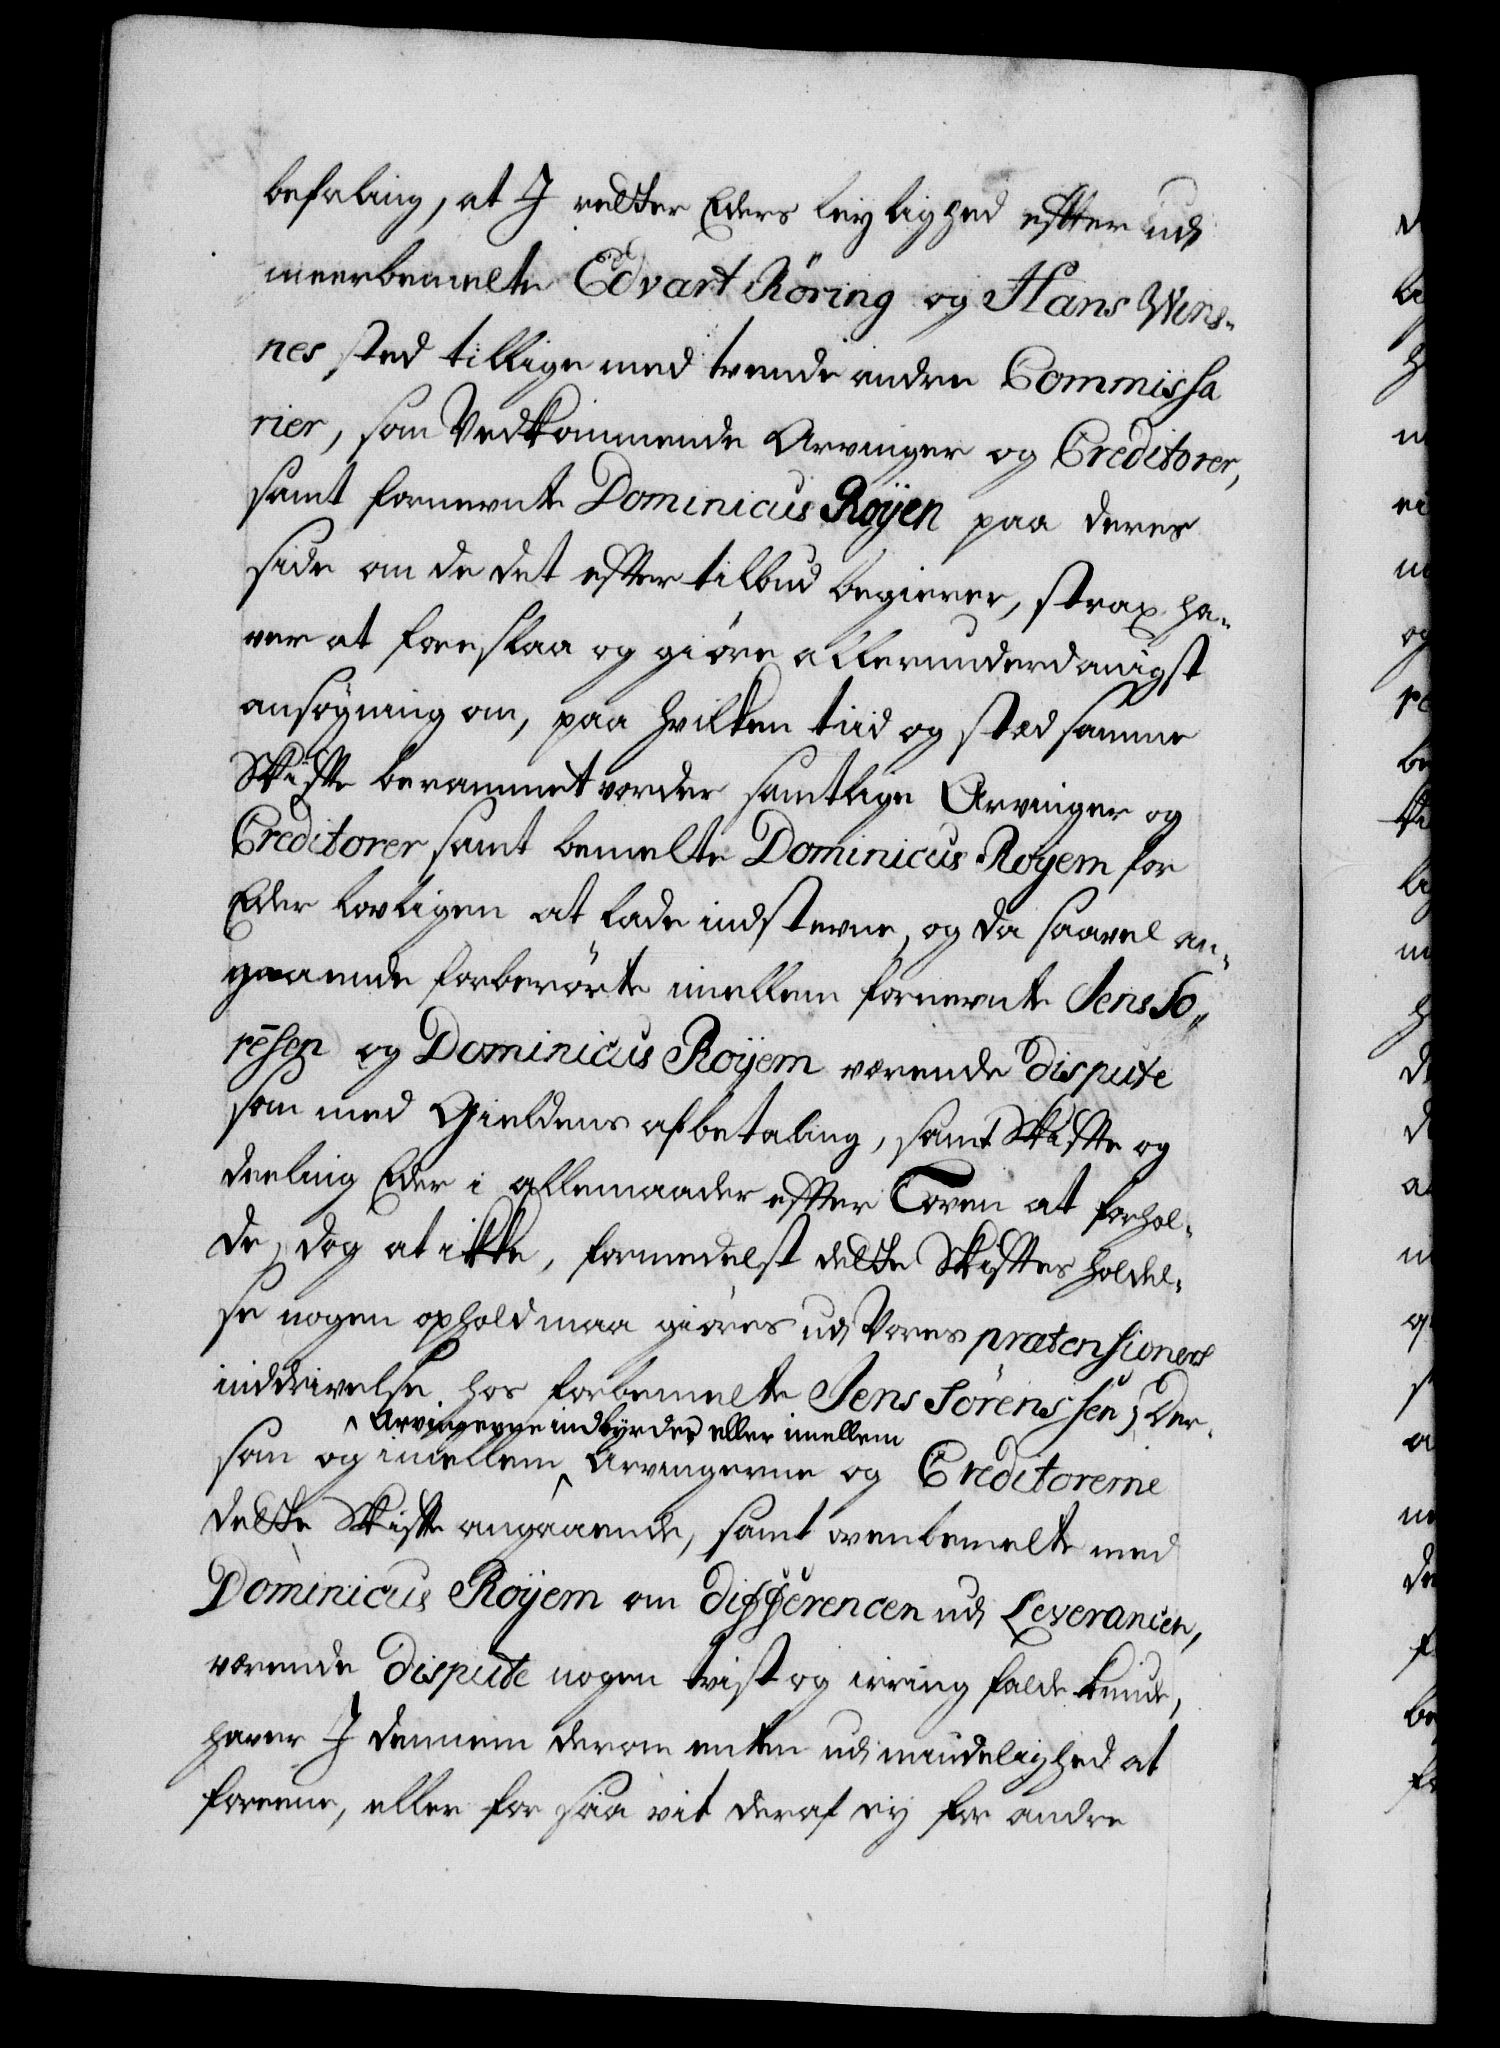 befaling, at I retter Eders leylighed effter udj
meerbemelte Edvart Röring og Hans Wins-
nes sted tillige med tvende andre Commissa
rier, som Vedkommende Arvinger og Creditorer,
samt fornevnte Dominicus Röÿen paa deres
side om de det effter tilbud begierer, strax ha-
ver at foreslaa og giöre allerunderdanigst
ansögning om, paa hvilken tiid og sted samme
Skiffte berammet vorder samtlige Arvinger og
Creditorer samt bemelte Dominicus Royem for
Eder lovligen at lade indstevne, og da saavel an-
gaaende forberörte imellem fornevnte Jens Sö-
rensen og Dominicus Roÿem værende dispute
som med Gieldens afbetaling, samt Skiffte og
deeling Eder i allemaader effter Loven at forhol-
de, dog at ikke, formedelst dette Skifftes holdel-
se nogen ophold maa giöres udj Vores prætensioners
inddrivelse hos forbemelte Jens Sörenssen; Der-
som og imellem ^ Arvingerne indbyrdes eller imellem
Arvingerne og Creditorerne
dette Skiffte angaaende, samt ovenbemelte med
Dominicus Roÿem om differencen udj Leverancen,
værende dispute nogen tvist og irring falde kunde,
haver I dennem derom enten udj mindelighed at
foreene, eller for saa vit deraf ey for andre